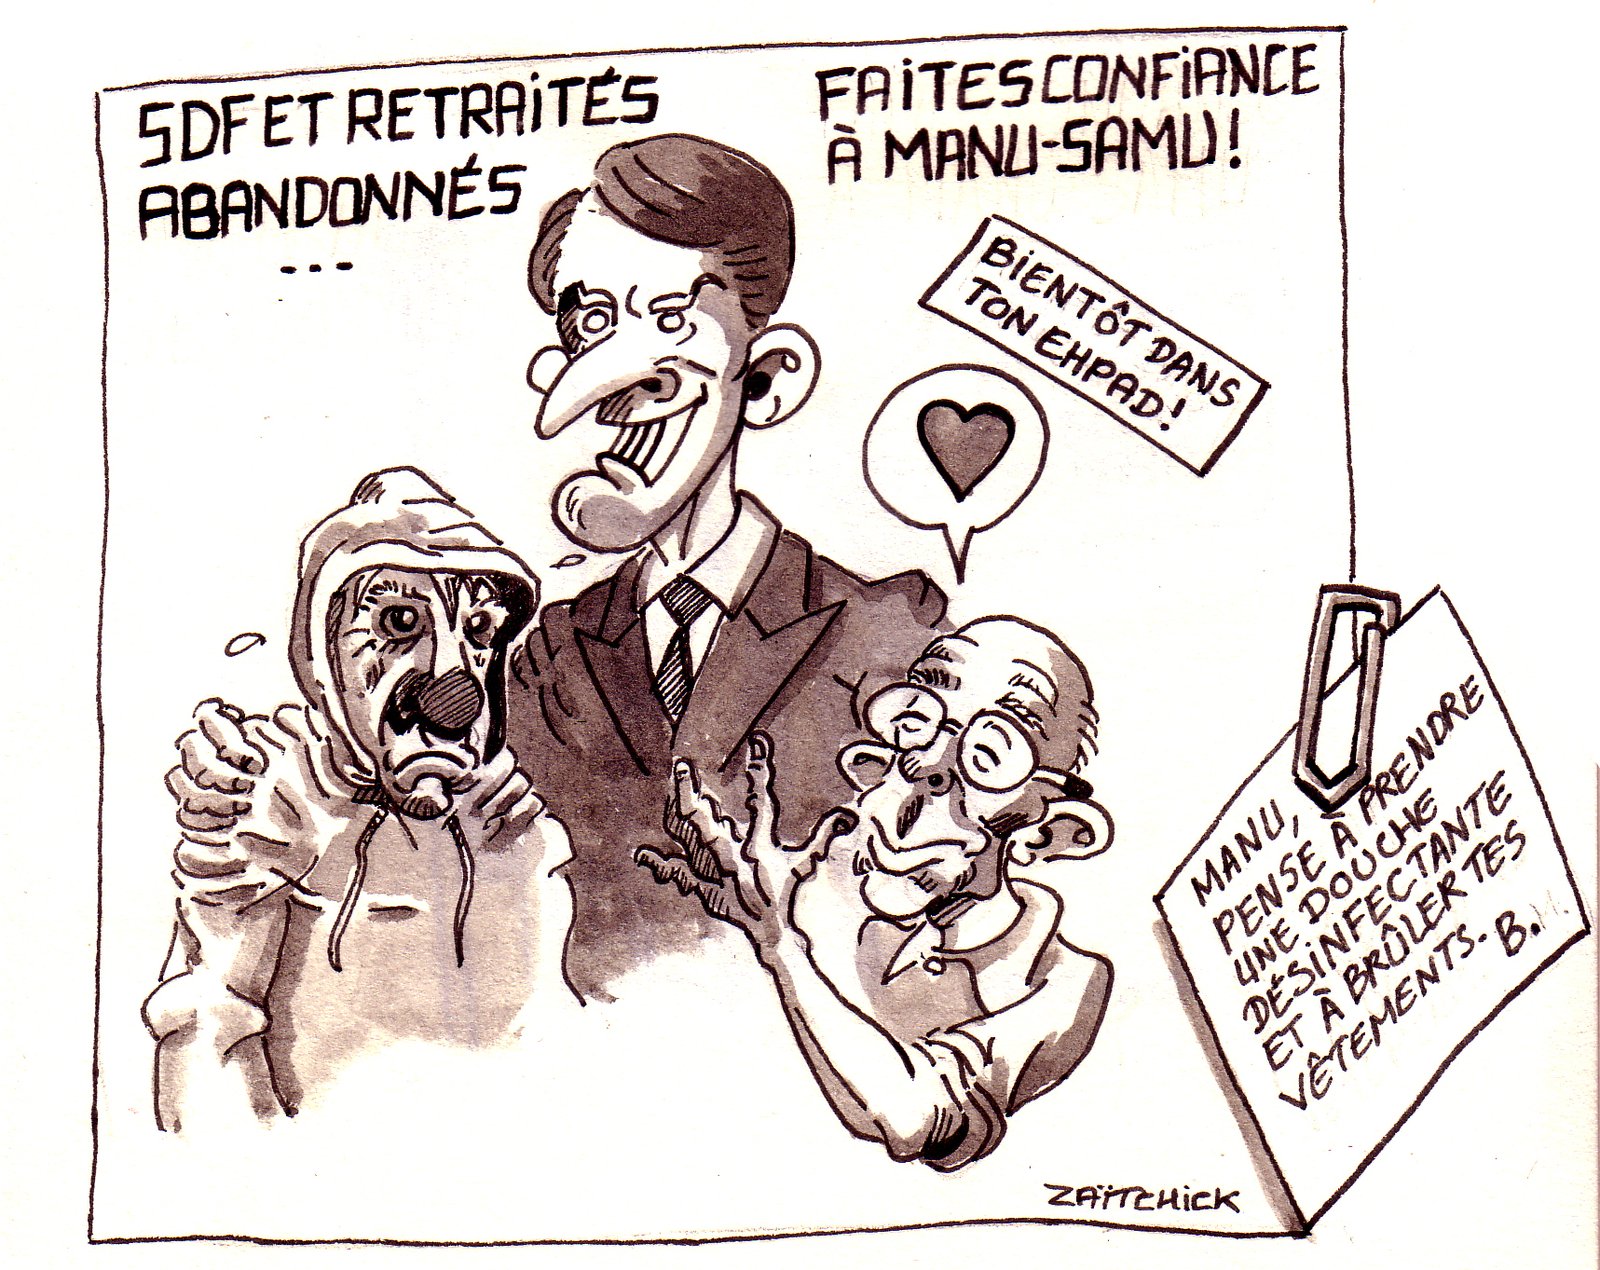 SDF ET RETRAITÉS
ABANDONNÉS
...
FAITES CONFIANCE
À MANU-SAMU!
BIENTÔT DANS
TON EHPAD!
MANU,
PENSE À PRENDRE
UNE DOUCHE
DÉSINFECTANTE
ET À BRÛLER TES
VÊTEMENTS. B.M.
ZAÏTCHICK